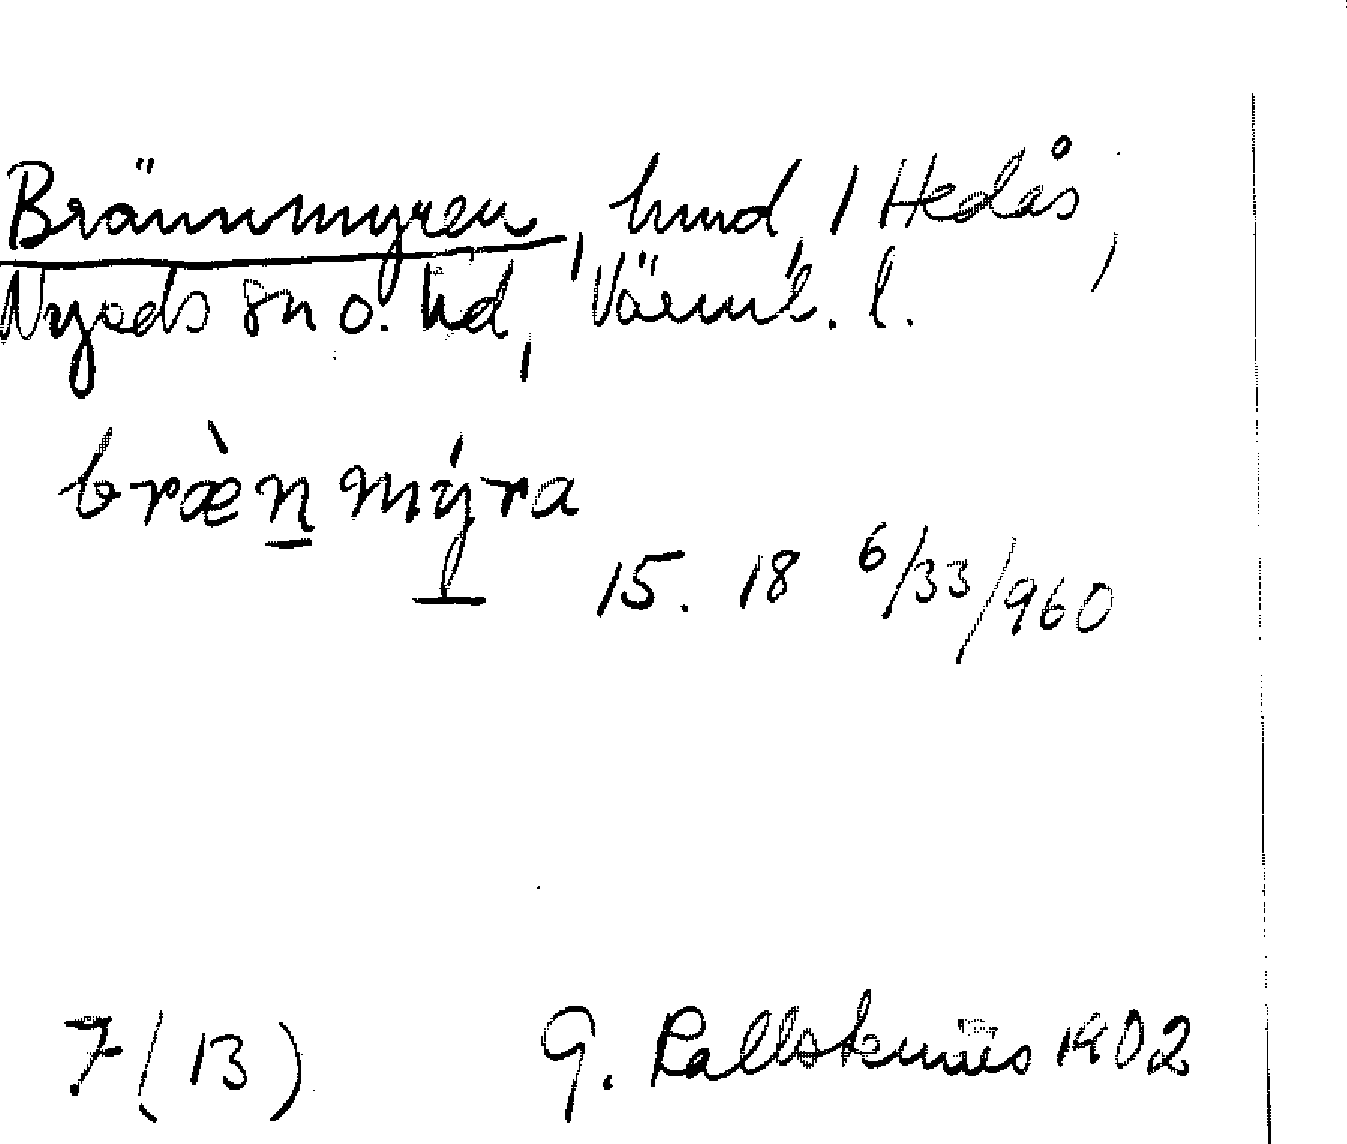 Brännmyren, hmd, 1 Hedås,
Nyeds sn o. hd, Värml. l.
bræ̀n mýra
15. 18 6/33/960
7 (13) G. Kallstenius 1902